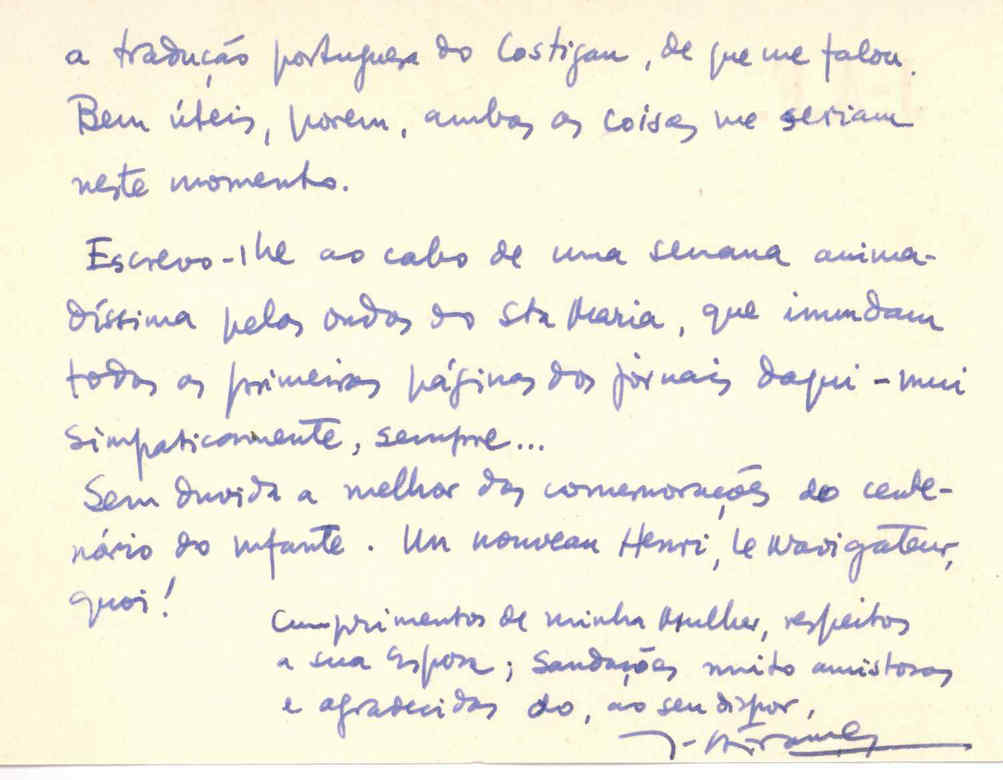 a tradução portuguesa do Costigan, de que me falou.
Bem úteis, porém, ambas as coisas me seriam
neste momento.
Escrevo-lhe ao cabo de uma semana anima-
díssima pelas ondas do Sta Maria, que inundam
todas as primeiras páginas dos jornais daqui - mui
simpaticamente, sempre...
Sem duvida a melhor das comemorações do cente-
nário do Infante. Un nouveau Henri, le Navigateur,
quoi!
Cumprimentos de minha Mulher, respeitos
a sua Esposa; Saudações muito amistosas
e agradecidas do, ao seu dispor,